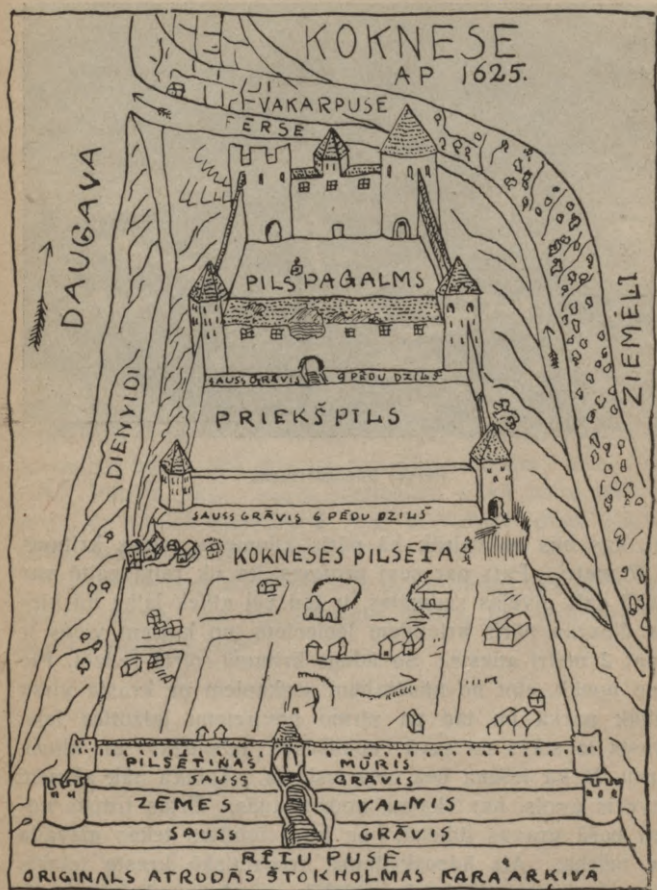 KOKNESE
AP 1625.
VAKARPUSE
FĒRSE
DAUGAVA
PILS PAGALMS
ZIEMĒLI
SAUSS GRĀVIS 9 PĒDU DZILŠ
DIENVIDI
PRIEKŠPILS
SAUSS GRĀVIS 6 PĒDU DZILŠ
KOKNESES PILSĒTA
PILSĒTIŅAS MŪRIS
SAUSS GRĀVIS
ZEMES VALNIS
SAUSS GRĀVIS
RĪTU PUSE
ORIGINALS ATRODĀS ŠTOKHOLMAS KARA ARKIVĀ